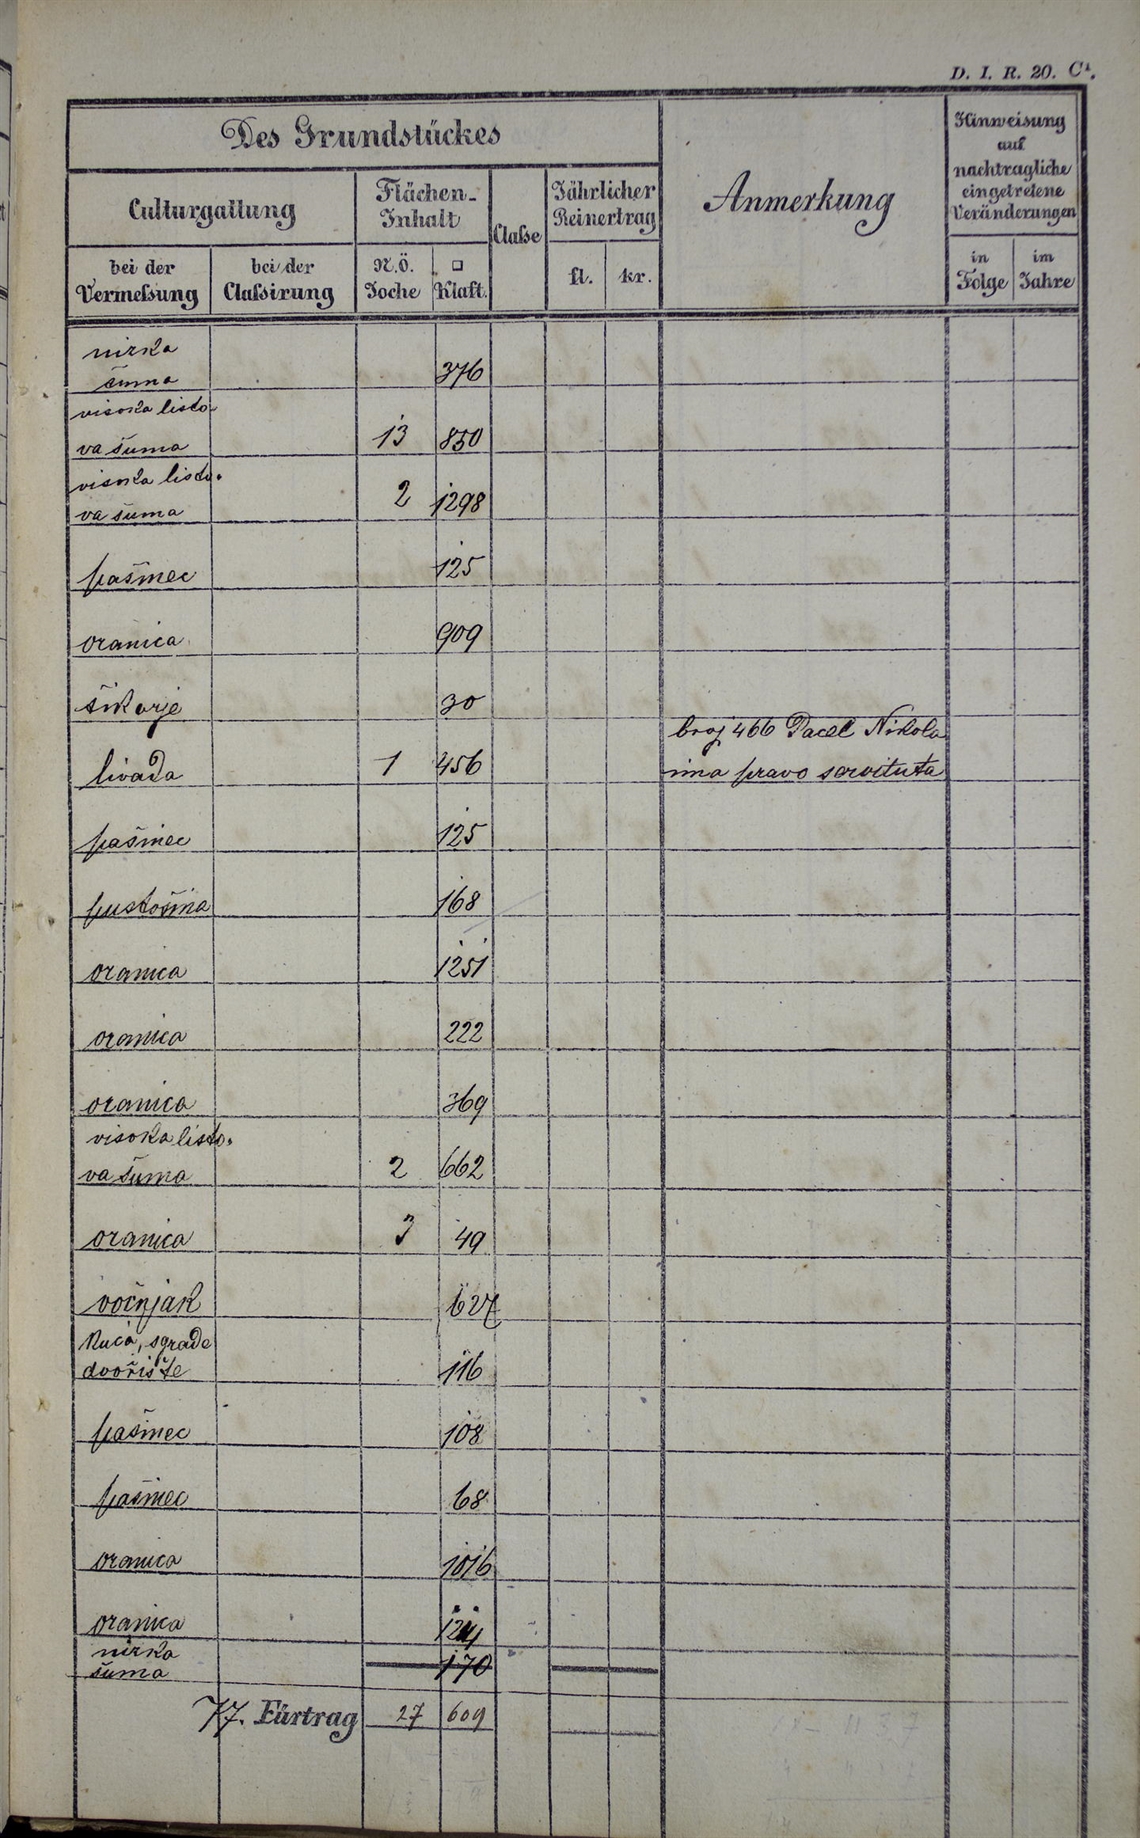 D. I. R. 20. C¹.
Des Grundstückes
Anmerkung
Hinweisung
auf
nachtragliche
eingetretene
Veränderungen
Culturgattung
Flächen-
Inhalt
Claße
Jährlicher
Reinertrag
bei der
Vermeßung
bei der
Claßirung
N.Ö.
Joche
□
Klaft.
fl.
kr.
in
Folge
im
Jahre
nizka
šuma 376
visoka listo-
va šuma 13 850
visoka listo-
va šuma 2 1298
pašinec 125
oranica 909
šikarje 30
broj 466 Pacel Nikola
livada 1 456 ima pravo servituta
pašinec 125
pustošina 168
oranica 1251
oranica 222
oranica 369
visoka listo-
va šuma 2 662
oranica 3 49
voćnjak 627
Kuća, sgrade
dvorište 116
pašinec 108
pašinec 68
oranica 1016
oranica
nizka
šuma 170
Fürtrag 27 609